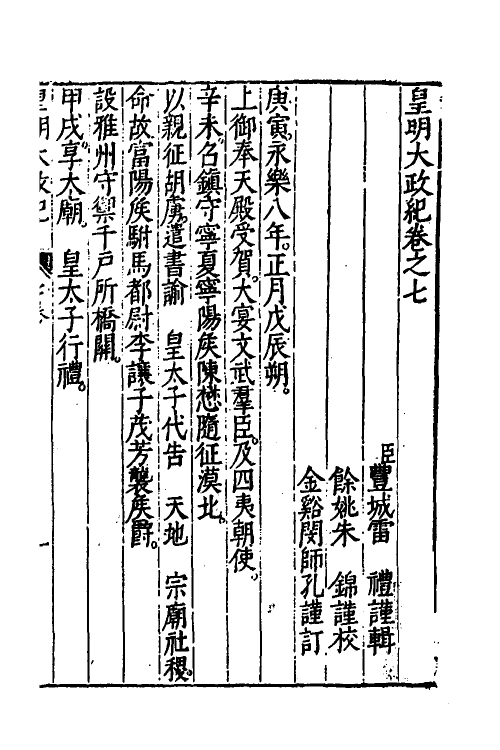 皇明大政紀卷之七
臣豐城雷　禮謹輯
餘姚朱　錦謹校
金谿閔師孔謹訂
庚寅永樂八年。正月戊辰朔。
上御奉天殿受賀。大宴文武羣臣。及四夷朝使。
辛未。召鎮守寧夏寧陽侯陳懋隨征漠北。
以親征胡虜。遣書諭　皇太子代告　天地　宗廟社稷。
命故富陽侯駙馬都尉李讓子茂芳襲侯爵。
設雅州守禦千戶所橋關。
甲戌。享太廟。　皇太子行禮。
皇明大政紀　卷　一